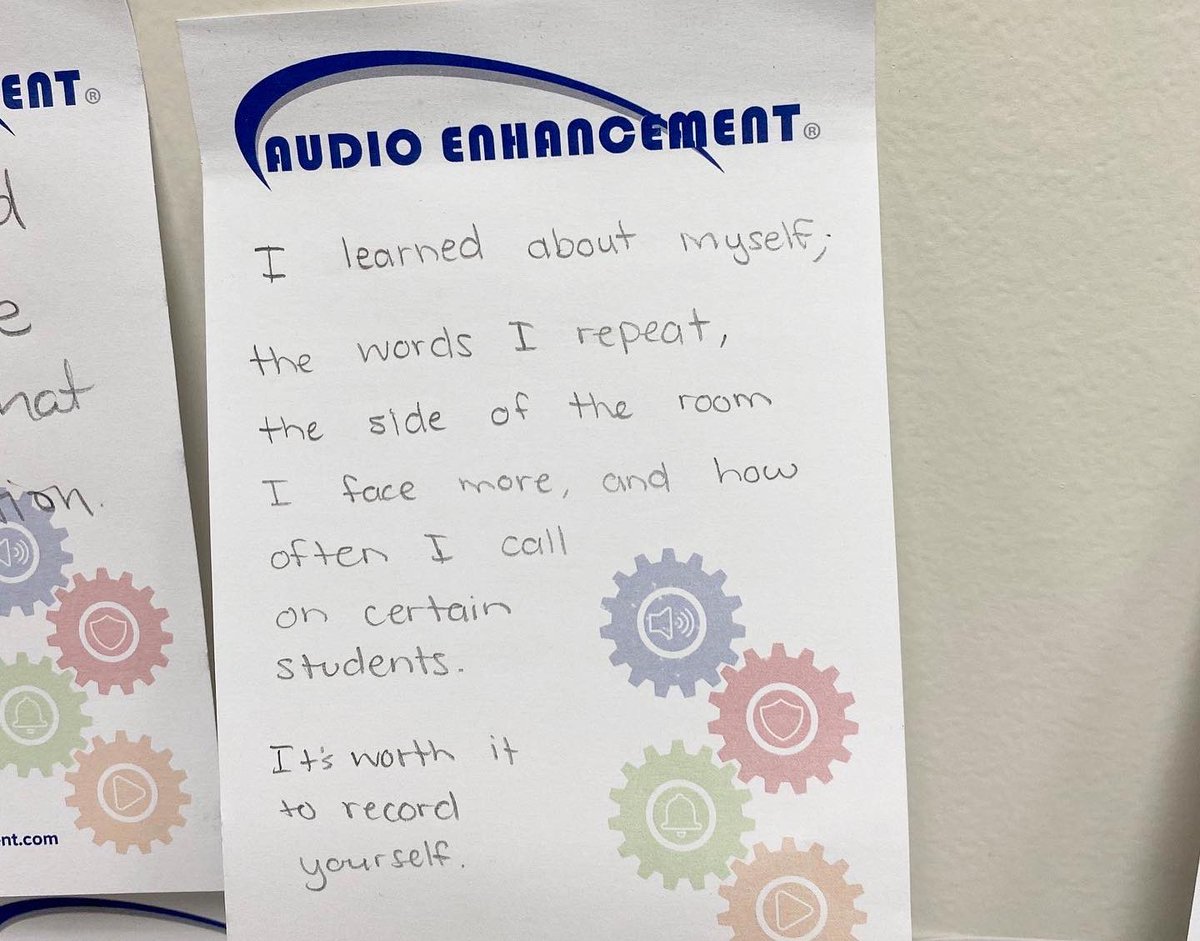 ENT®
d
e
hat
ion.
nt.com
AUDIO ENHANCEMENT®
I learned about myself;
the words I repeat,
the side of the room
I face more, and how
often I call
on certain
students.
It's worth it
to record
yourself.